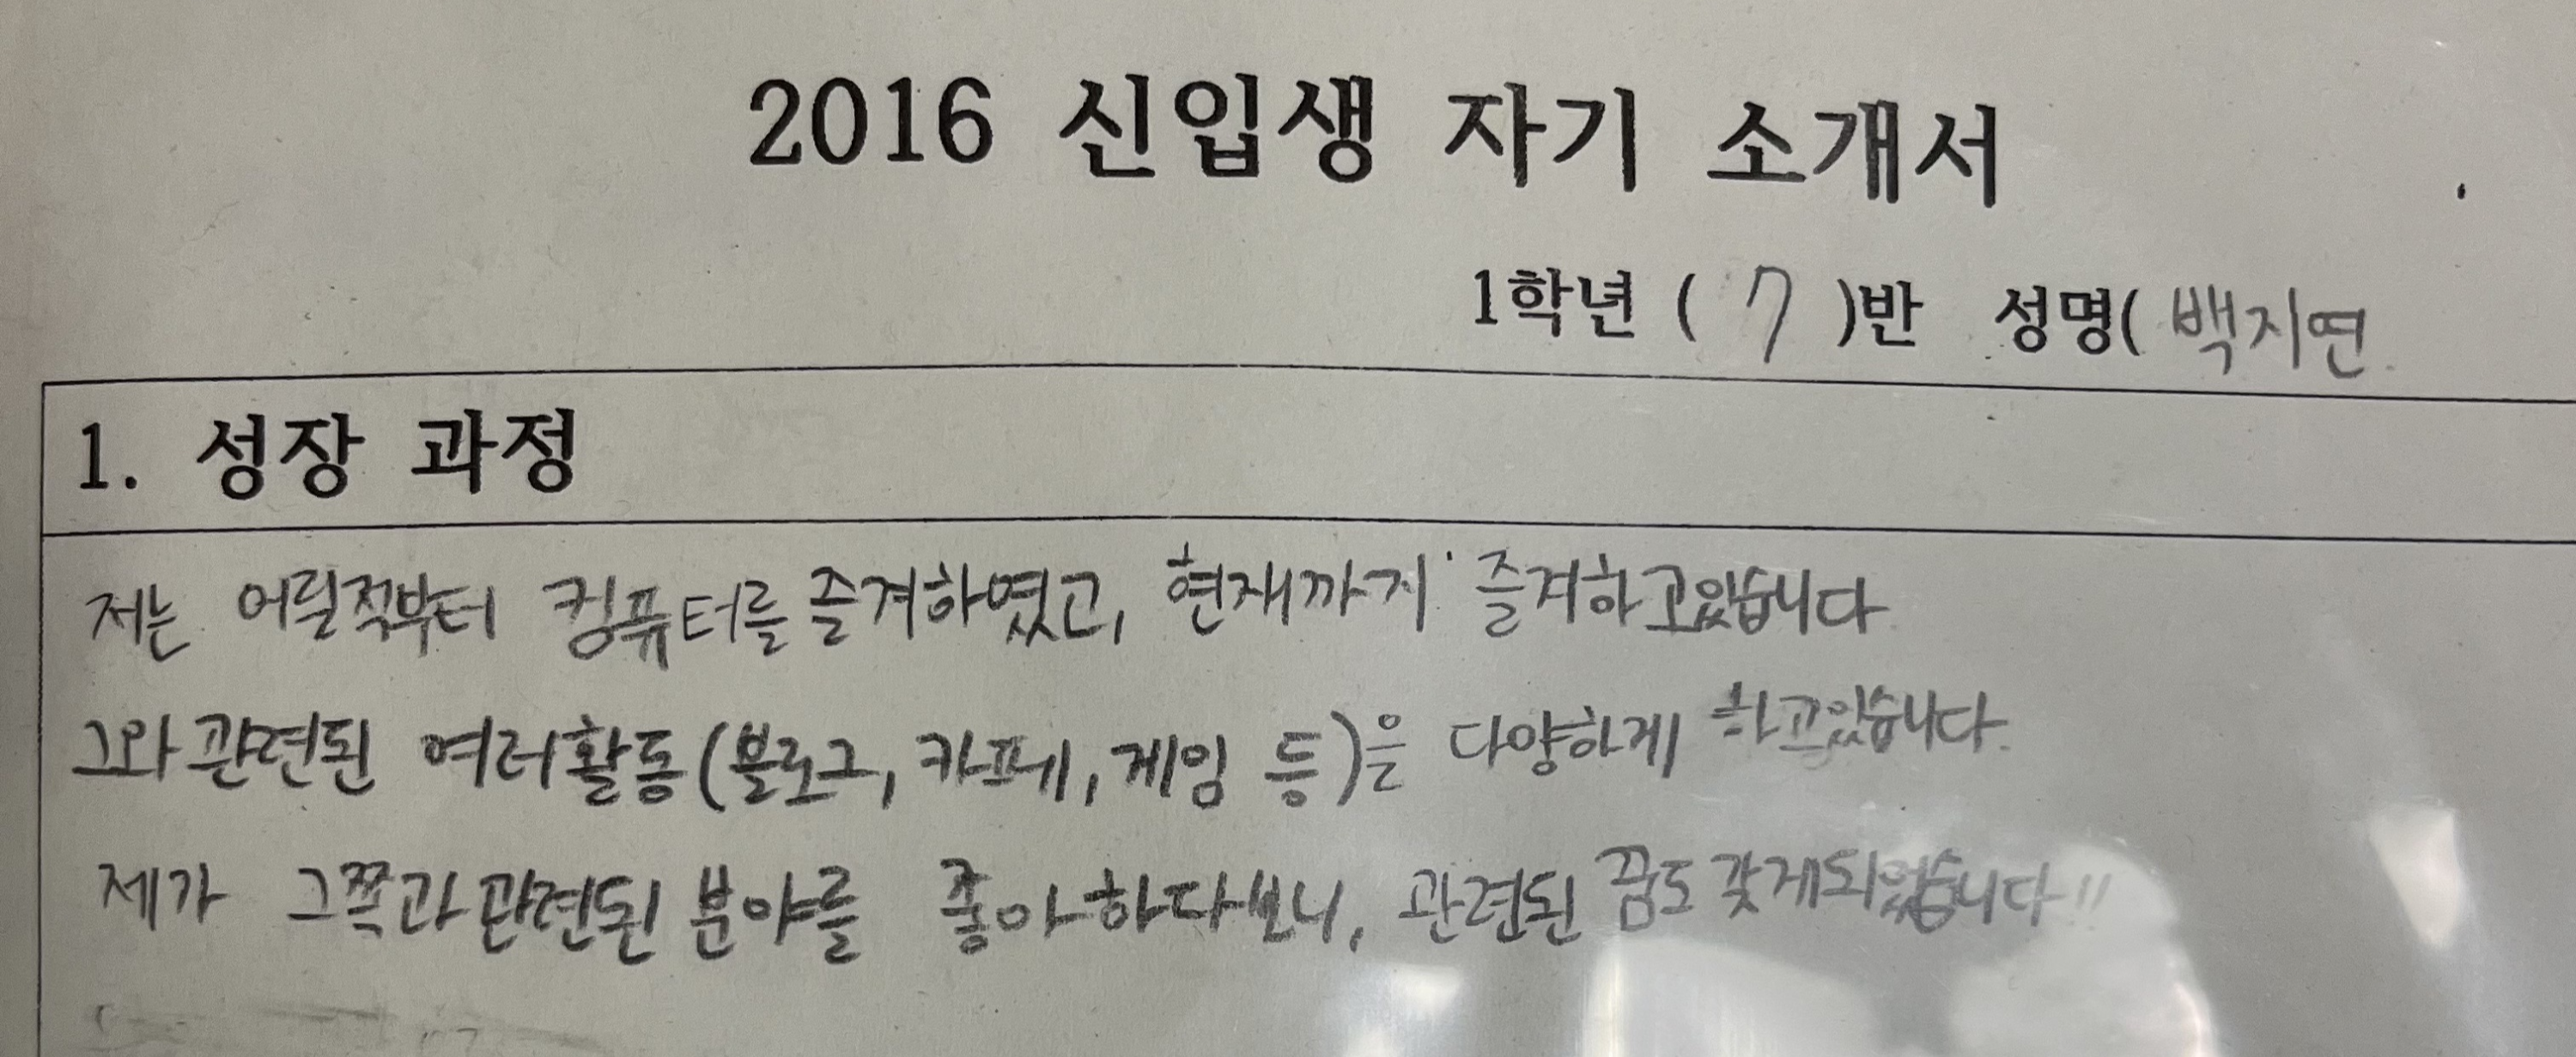 2016 신입생 자기 소개서
1학년 ( 7 )반 성명( 백지연
1. 성장 과정
저는 어릴적부터 컴퓨터를 즐겨하였고, 현재까지 즐겨하고있습니다
그와 관련된 여러활동(블로그, 카페, 게임 등)은 다양하게 하고있습니다.
제가 그쪽과 관련된 분야를 좋아하다보니, 관련된 꿈도 갖게되었습니다!!